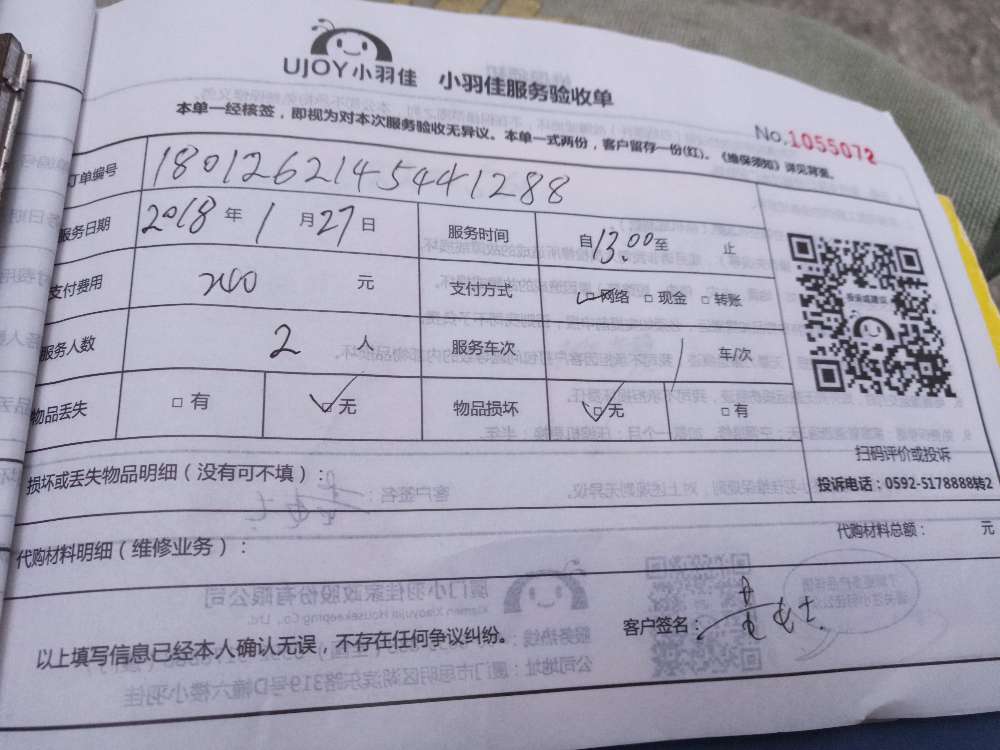 UJOY小羽佳 小羽佳服务验收单
本单一经核签，即视为对本次服务验收无异议。本单一式两份，客户留存一份(红)。《维保须知》详见背面。
No.1055072
订单编号 18012621454412 88
服务日期 2018年1月27日 服务时间 自13:00至 止
支付费用 200 元 支付方式 网络 现金 转账
服务人数 2 人 服务车次 / 车/次
物品丢失 有 无 物品损坏 无 有
投诉或建议
扫码评价或投诉
投诉电话：0592-5178888转2
损坏或丢失物品明细（没有可不填）：
代购材料明细（维修业务）：
代购材料总额： 元
以上填写信息已经本人确认无误，不存在任何争议纠纷。
客户签名：